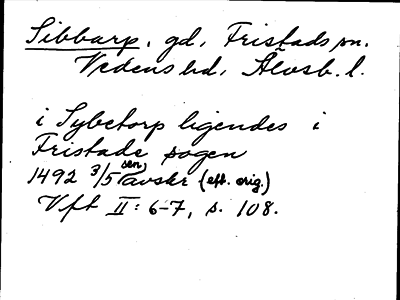 Sibbarp, gd, Fristads sn.
Vedens hd, Älvsb. l.
i Sybetorp ligendes i
Fristade sogen
1492 3/5 sen avskr (eft. orig.)
Vft II: 6-7, s. 108.